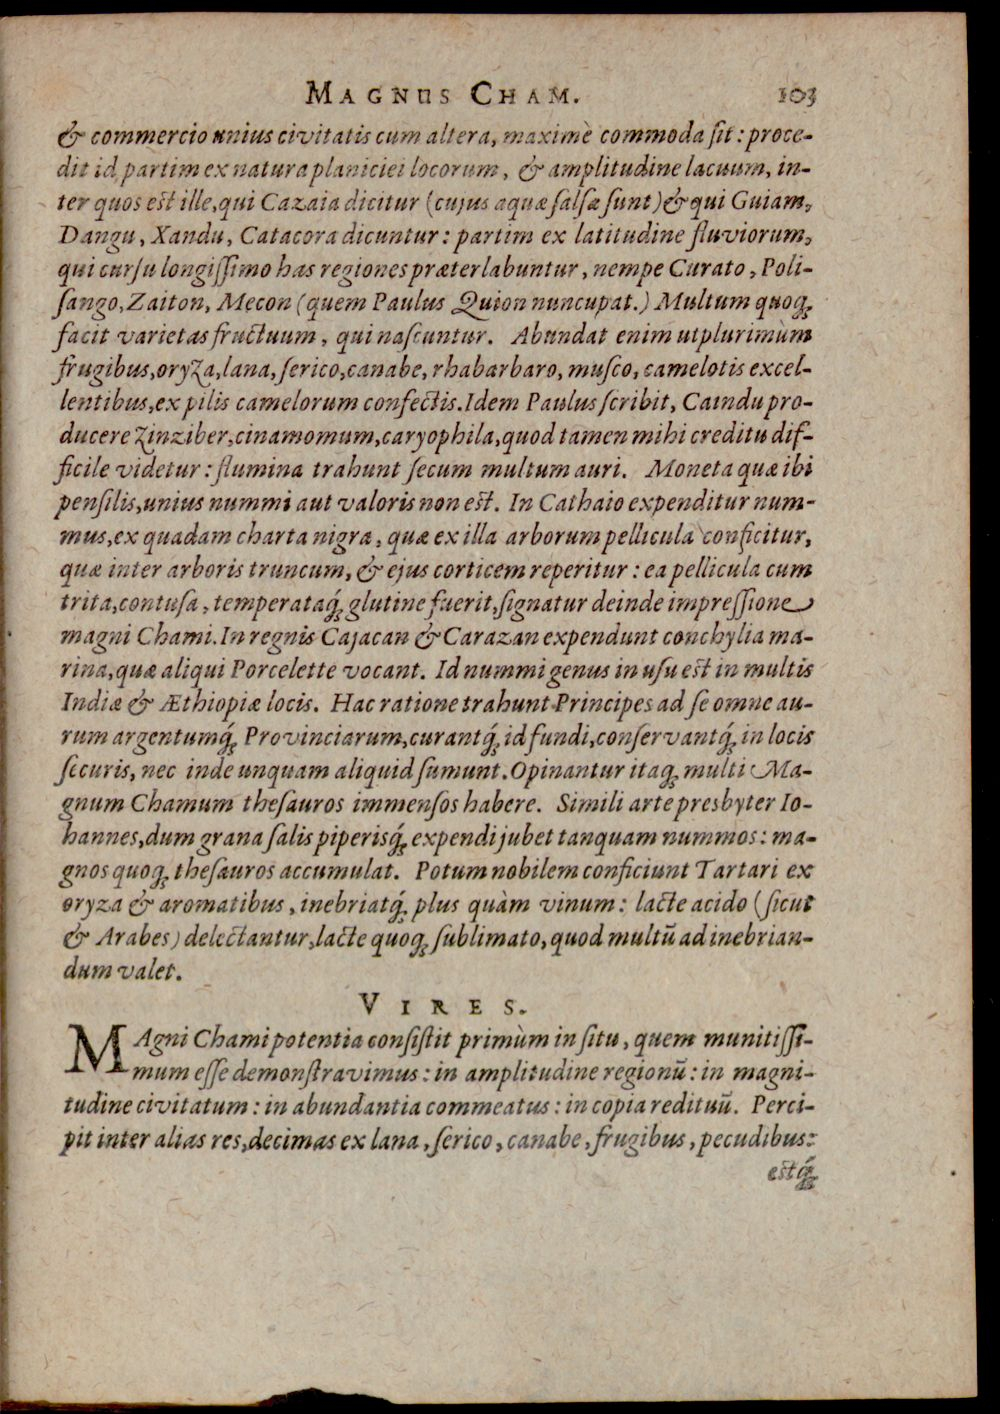 MAGNUS CHAM. 103
& commercio unius civitatis cum altera, maximè commoda ſit: proce-
dit id partim ex natura planiciei locorum, & amplitudine lacuum, in-
ter quos eſt ille, qui Cazaia dicitur (cujus aquæ ſalſæ ſunt) & qui Guiam,
Dangu, Xandu, Catacora dicuntur: partim ex latitudine fluviorum,
qui curſu longiſſimo has regiones præterlabuntur, nempe Curato, Poli-
ſango, Zaiton, Mecon (quem Paulus Quion nuncupat.) Multum quoq́;
facit varietas fructuum, qui naſcuntur. Abundat enim utplurimùm
frugibus, oryza, lana, ſerico, canabe, rhabarbaro, muſco, camelotis excel-
lentibus, ex pilis camelorum confectis. Idem Paulus ſcribit, Caindu pro-
ducere zinziber, cinamomum, caryophila, quod tamen mihi creditu dif-
ficile videtur: flumina trahunt ſecum multum auri. Moneta quæ ibi
penſilis, unius nummi aut valoris non eſt. In Cathaio expenditur num-
mus, ex quadam charta nigra, quæ ex illa arborum pellicula conficitur,
quæ inter arboris truncum, & ejus corticem reperitur: ea pellicula cum
trita, contuſa, temperataq́; glutine fuerit, ſignatur deinde impreſſione
magni Chami. In regnis Cajacan & Carazan expendunt conchylia ma-
rina, quæ aliqui Porcelette vocant. Id nummi genus in uſu eſt in multis
Indiæ & Æthiopiæ locis. Hac ratione trahunt Principes ad ſe omne au-
rum argentumq́; Provinciarum, curantq́; id fundi, conſervantq́; in locis
ſecuris, nec inde unquam aliquid ſumunt. Opinantur itaq; multi Ma-
gnum Chamum theſauros immenſos habere. Simili arte presbyter Io-
hannes, dum grana ſalis piperisq́; expendi jubet tanquam nummos: ma-
gnos quoq; theſauros accumulat. Potum nobilem conficiunt Tartari ex
oryza & aromatibus, inebriatq́; plus quàm vinum: lacte acido (ſicut
& Arabes) delectantur, lacte quoq; ſublimato, quod multũ ad inebrian-
dum valet.
VIRES.
MAgni Chami potentia conſiſtit primùm in ſitu, quem munitiſſi-
mum eſſe demonſtravimus: in amplitudine regionũ: in magni-
tudine civitatum: in abundantia commeatus: in copia redituũ. Perci-
pit inter alias res, decimas ex lana, ſerico, canabe, frugibus, pecudibus:
eſtq́;